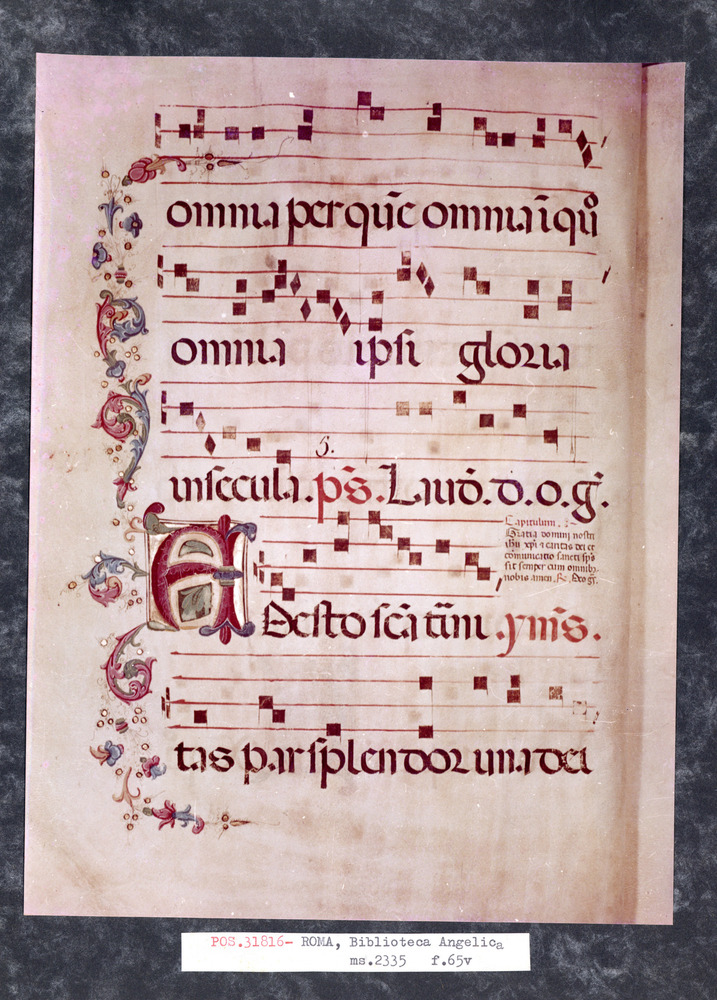 omnia per quē omnia ī quo
omnia ipsi gloria
5.
in secula. ps̄. Laud̄. d. o. g̃.
Capitulum.
Gratia domini nostri
ihū xp̄i ⁊ caritas dei et
cōmunicatio sancti sp̄s
sit semper cum omnibꝫ
vobis amen. R̄. Deo gr̄.
Adesto sc̄a t̄īni. ymn̄s.
tas par splendor una dei
POS.31816- ROMA, Biblioteca Angelica
ms.2335 f.65v